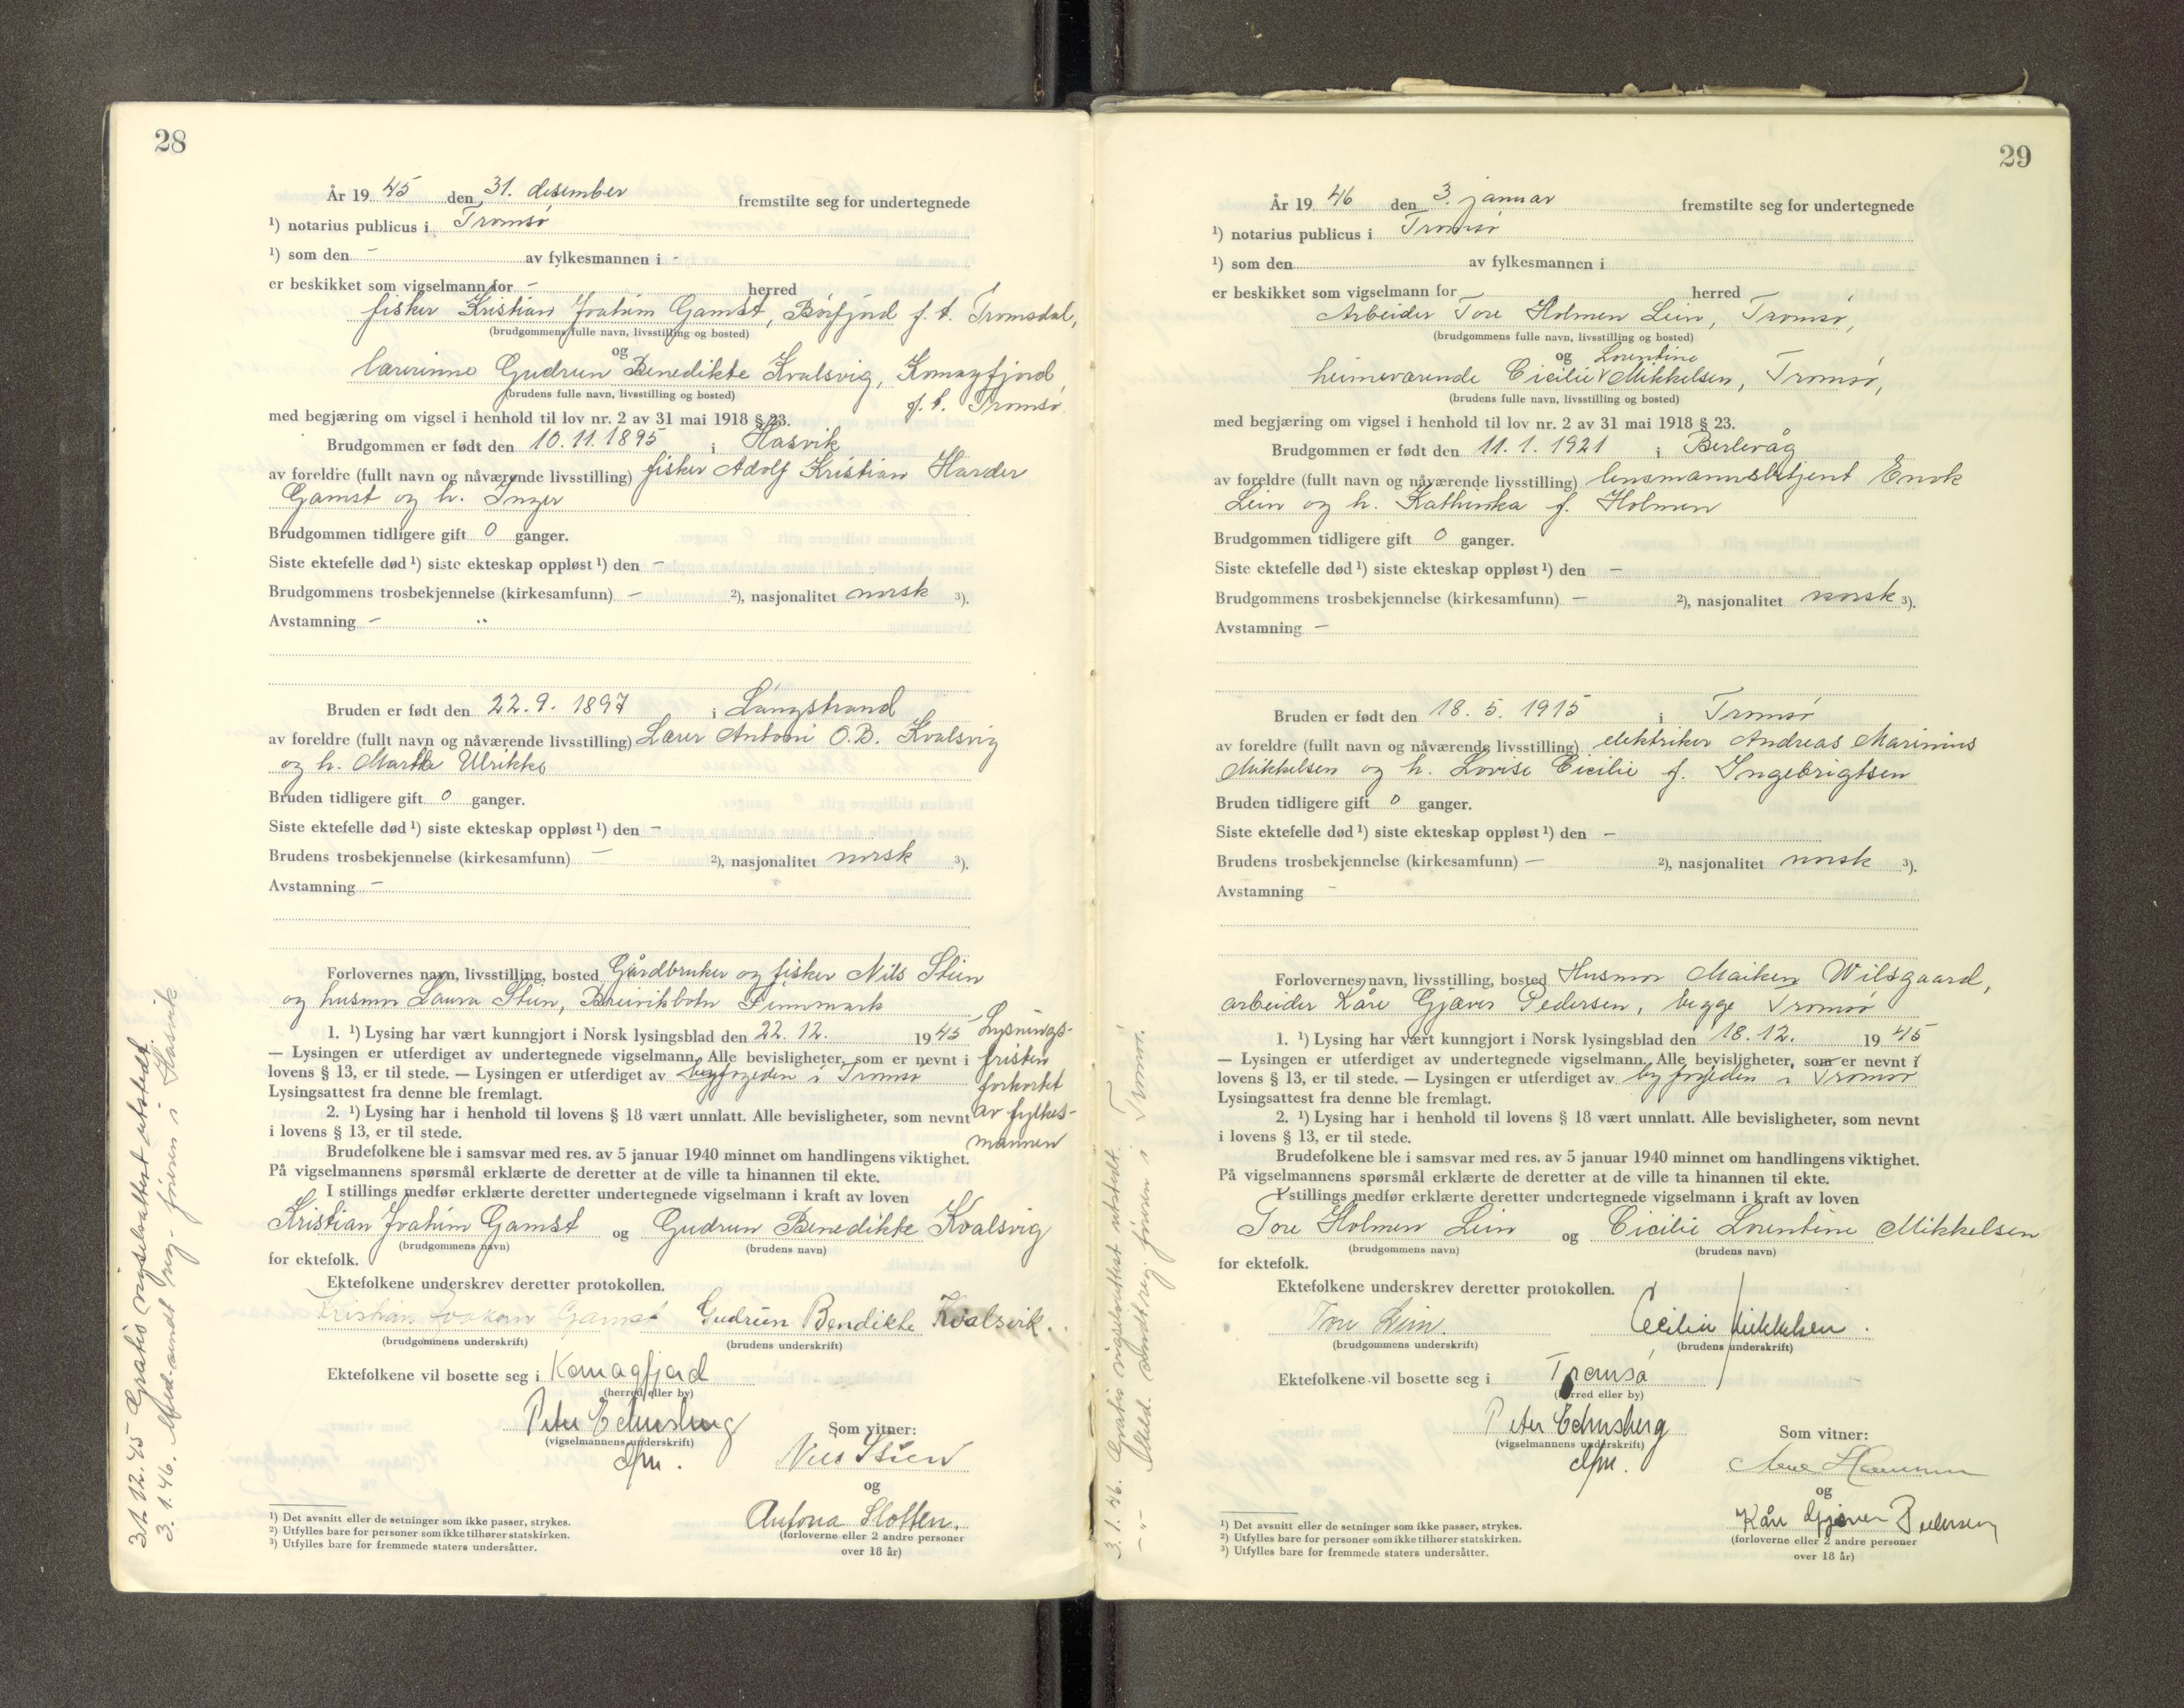 28
År 19 45 den 31. desember fremstilte seg for undertegnede
¹) notarius publicus i Tromsø
¹) som den - av fylkesmannen i -
er beskikket som vigselmann for - herred
fisker Kristian Joakim Gamst, Børfjord f. t. Tromsdal,
(brudgommens fulle navn, livsstilling og bosted)
og
lærerinne Gudrun Benedikte Kvalsvig, Komagfjord,
(brudens fulle navn, livsstilling og bosted) f. t. Tromsø.
med begjæring om vigsel i henhold til lov nr. 2 av 31 mai 1918 § 23.
Brudgommen er født den 10.11.1895 i Hasvik
av foreldre (fullt navn og nåværende livsstilling) fisker Adolf Kristian Harder
Gamst og h. Inger
Brudgommen tidligere gift 0 ganger.
Siste ektefelle død ¹) siste ekteskap oppløst ¹) den -
Brudgommens trosbekjennelse (kirkesamfunn) - ²), nasjonalitet norsk ³).
Avstamning -
Bruden er født den 22.9.1897 i Langstrand
av foreldre (fullt navn og nåværende livsstilling) Lærer Antoni O.B. Kvalsvig
og h. Marthe Ulrikke
Bruden tidligere gift 0 ganger.
Siste ektefelle død ¹) siste ekteskap oppløst ¹) den -
Brudens trosbekjennelse (kirkesamfunn) - ²), nasjonalitet norsk ³).
Avstamning -
Forlovernes navn, livsstilling, bosted Gårdbruker og fisker Nils Stien
og husmor Laura Stien, Breivikbotn Finnmark
1. ¹) Lysing har vært kunngjort i Norsk lysingsblad den 22.12. 19 45
— Lysingen er utferdiget av undertegnede vigselmann. Alle bevisligheter, som er nevnt i
lovens § 13, er til stede. — Lysingen er utferdiget av byfogden i Tromsø
Lysingsattest fra denne ble fremlagt.
2. ¹) Lysing har i henhold til lovens § 18 vært unnlatt. Alle bevisligheter, som nevnt
i lovens § 13, er til stede.
Lysnings-
fristen
forkortet
av fylkes-
mannen
Brudefolkene ble i samsvar med res. av 5 januar 1940 minnet om handlingens viktighet.
På vigselmannens spørsmål erklærte de deretter at de ville ta hinannen til ekte.
I stillings medfør erklærte deretter undertegnede vigselmann i kraft av loven
Kristian Joakim Gamst og Gudrun Benedikte Kvalsvig
(brudgommens navn) (brudens navn)
for ektefolk.
Ektefolkene underskrev deretter protokollen.
Kristian Joakom Gamst Gudrun Bendikte Kvalsvik.
(brudgommens underskrift) (brudens underskrift)
Ektefolkene vil bosette seg i Komagfjord
(herred eller by)
Peter
(vigselmannens underskrift)
Som vitner:
Nils Stien
og
Antona Slotten.
(forloverne eller 2 andre personer
over 18 år)
¹) Det avsnitt eller de setninger som ikke passer, strykes.
²) Utfylles bare for personer som ikke tilhører statskirken.
³) Utfylles bare for fremmede staters undersåtter.
31.12.45 Gratis vigselsattest utstedt.
3.1.46. Meld. sendt reg. føreren i Hasvik
29
År 19 46 den 3. januar fremstilte seg for undertegnede
¹) notarius publicus i Tromsø
¹) som den av fylkesmannen i
er beskikket som vigselmann for herred
Arbeider Tore Holmen Lein, Tromsø,
(brudgommens fulle navn, livsstilling og bosted)
og Lorentine
heimeværende Cicilie Mikkelsen, Tromsø,
(brudens fulle navn, livsstilling og bosted)
med begjæring om vigsel i henhold til lov nr. 2 av 31 mai 1918 § 23.
Brudgommen er født den 11.1.1921 i Berlevåg
av foreldre (fullt navn og nåværende livsstilling) lensmannsbetjent Enok
Lein og h. Kathinka f. Holmen
Brudgommen tidligere gift 0 ganger.
Siste ektefelle død ¹) siste ekteskap oppløst ¹) den -
Brudgommens trosbekjennelse (kirkesamfunn) - ²), nasjonalitet norsk ³).
Avstamning -
Bruden er født den 18.5.1915 i Tromsø
av foreldre (fullt navn og nåværende livsstilling) elektriker Andreas Marinius
Mikkelsen og h. Lovise Cicilie f. Ingebrigtsen
Bruden tidligere gift 0 ganger.
Siste ektefelle død ¹) siste ekteskap oppløst ¹) den -
Brudens trosbekjennelse (kirkesamfunn) - ²), nasjonalitet norsk ³).
Avstamning -
Forlovernes navn, livsstilling, bosted Husmor Maiken Wilsgaard,
arbeider Kåre Gjæver Pedersen, begge Tromsø
1. ¹) Lysing har vært kunngjort i Norsk lysingsblad den 18.12. 19 45
— Lysingen er utferdiget av undertegnede vigselmann. Alle bevisligheter, som er nevnt i
lovens § 13, er til stede. — Lysingen er utferdiget av byfogden i Tromsø
Lysingsattest fra denne ble fremlagt.
2. ¹) Lysing har i henhold til lovens § 18 vært unnlatt. Alle bevisligheter, som nevnt
i lovens § 13, er til stede.
Brudefolkene ble i samsvar med res. av 5 januar 1940 minnet om handlingens viktighet.
På vigselmannens spørsmål erklærte de deretter at de ville ta hinannen til ekte.
I stillings medfør erklærte deretter undertegnede vigselmann i kraft av loven
Tore Holmen Lein og Cicilie Lorentine Mikkelsen
(brudgommens navn) (brudens navn)
for ektefolk.
Ektefolkene underskrev deretter protokollen.
Tore Lein. Cecilie Mikkelsen.
(brudgommens underskrift) (brudens underskrift)
Ektefolkene vil bosette seg i Tromsø
(herred eller by)
Peter
(vigselmannens underskrift)
Som vitner:
og
Kåre Gjæver Pedersen
(forloverne eller 2 andre personer
over 18 år)
¹) Det avsnitt eller de setninger som ikke passer, strykes.
²) Utfylles bare for personer som ikke tilhører statskirken.
³) Utfylles bare for fremmede staters undersåtter.
3.1.46. Gratis vigselsattest utstedt.
- " - Meld. sendt reg. føreren i Tromsø.